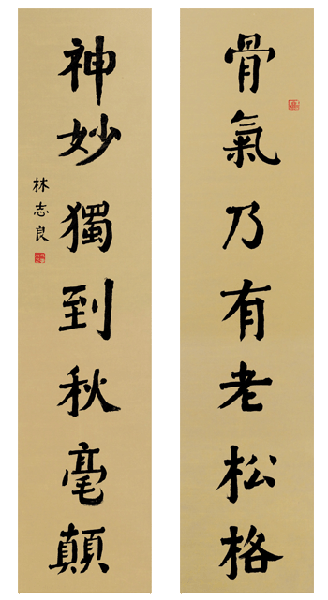 骨氣乃有老松格
神妙獨到秋毫顛
林志良